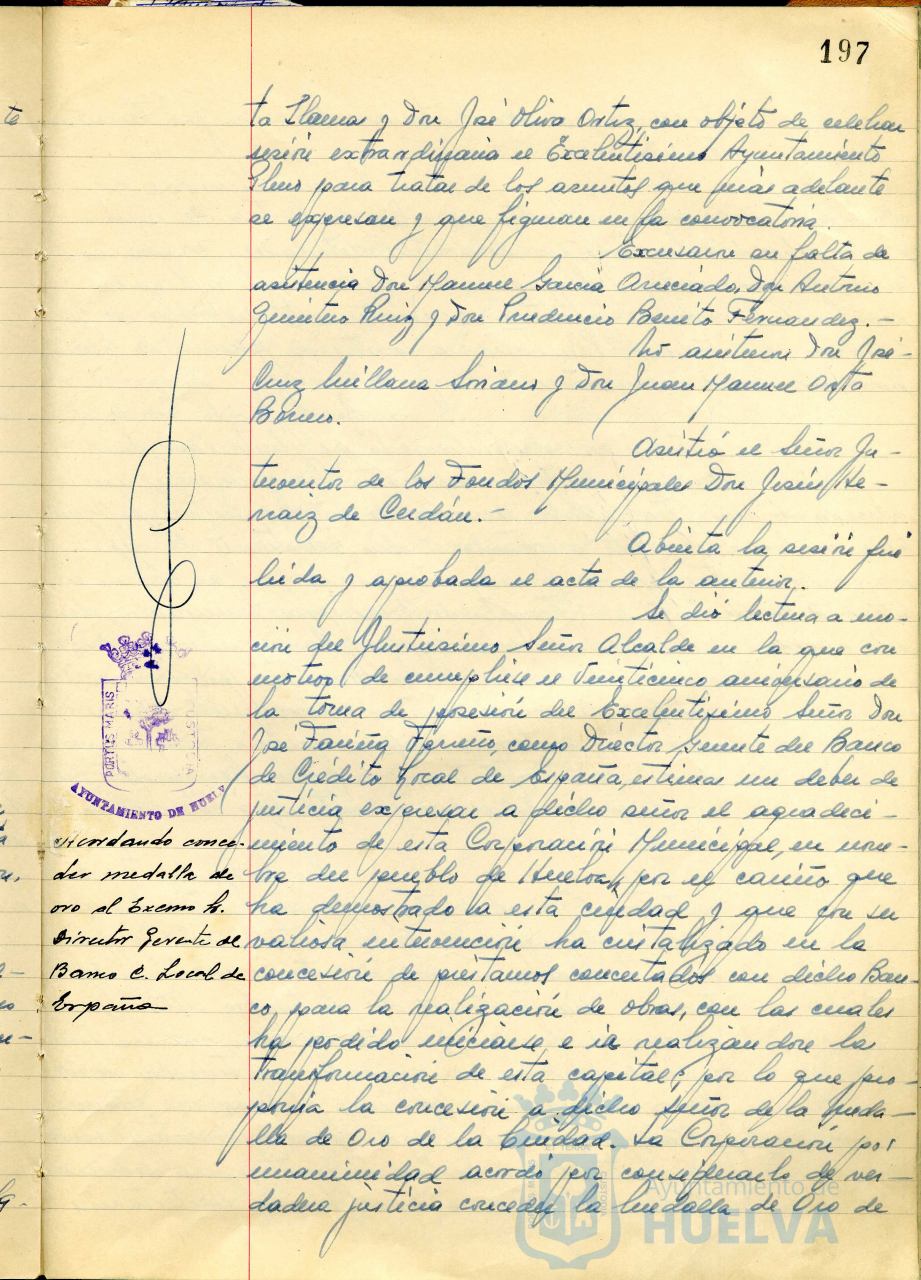 197
ta Llamas y Don José Oliva Ortiz, con objeto de celebrar
sesión extraordinaria el Excelentísimo Ayuntamiento
Pleno para tratar de los asuntos que más adelante
se expresan y que figuran en la convocatoria.
Excusaron su falta de
asistencia Don Manuel García Don Antonio
Quintero Ruiz y Don Prudencio Benito Fernandez.-
No asistieron Don José
Cruz Millana Soriano y Don Juan Manuel Orta
Asistió el Señor In-
terventor de los Fondos Municipales Don Jesús He-
rraiz de Cerdán.-
Abierta la sesión fué
leida y aprobada el acta de la anterior.
Se dió lectura a mo-
ción del Ilustrisimo Señor Alcalde en la que con
motivo de cumplirse el Veinticinco aniversario de
la toma de posesión del Excelentisimo Señor Don
José Fariña Ferreño, como Director Gerente del Banco
de Crédito Local de España, estima un deber de
justicia expresar a dicho señor el agradeci-
miento de esta Corporación Municipal, en nom-
bre del pueblo de Huelva, por el cariño que
ha demostrado a esta ciudad y que con su
valiosa intervención ha cristalizado en la
concesión de préstamos concertados con dicho Ban-
co, para la realización de obras, con las cuales
ha podido iniciarse, e ir realizandose la
transformación de esta capital; por lo que pro-
ponia la concesión a dicho señor de la meda-
lla de Oro de la Ciudad. La Corporación por
unanimidad acordó por considerarlo de ver-
dadera justicia conceder la Medalla de Oro de
PORTUS MARIS
AYUNTAMIENTO DE HUELV
Acordando conce-
der medalla de
oro al Excmo Sr.
Director Gerente del
Banco C. Local de
España
Ayuntamiento de
HUELVA